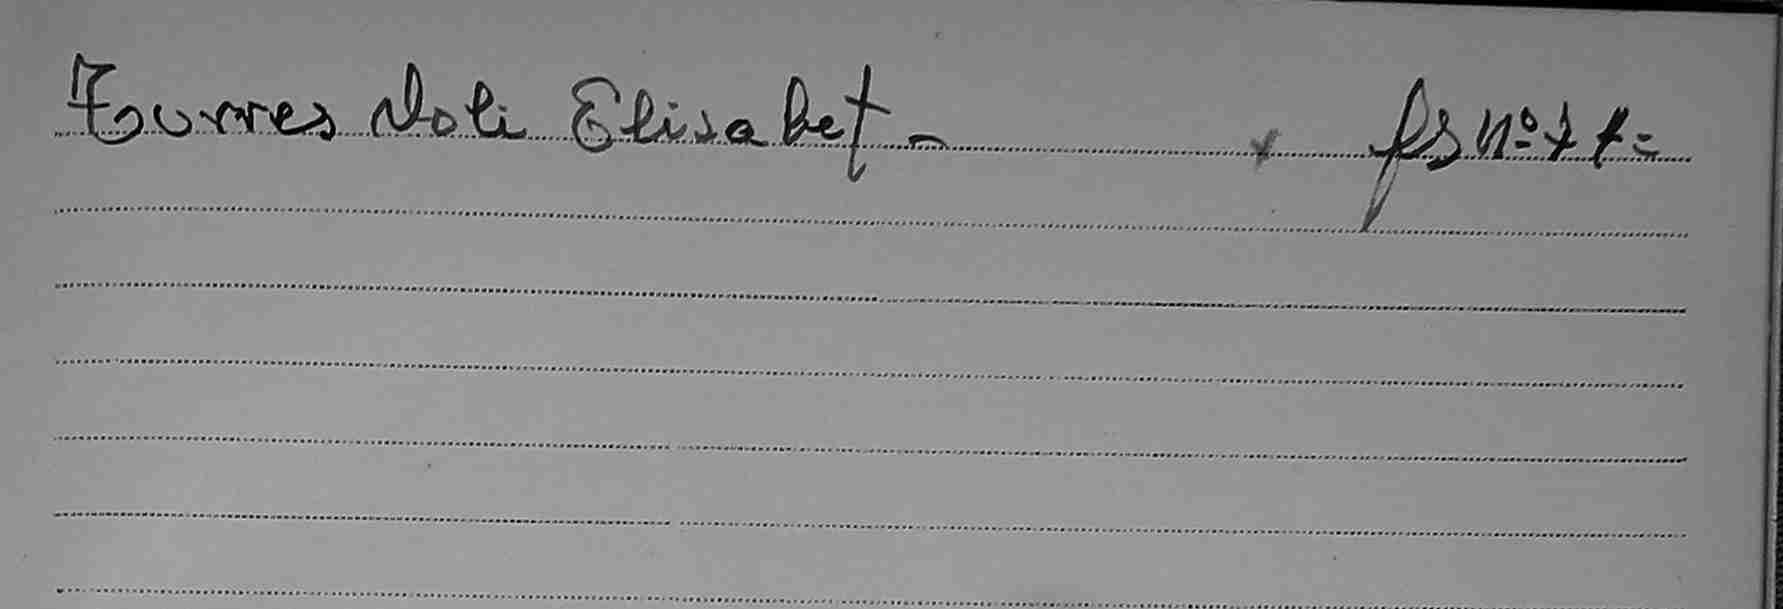 Tourres Noli Elisabet - fs nº 77 =